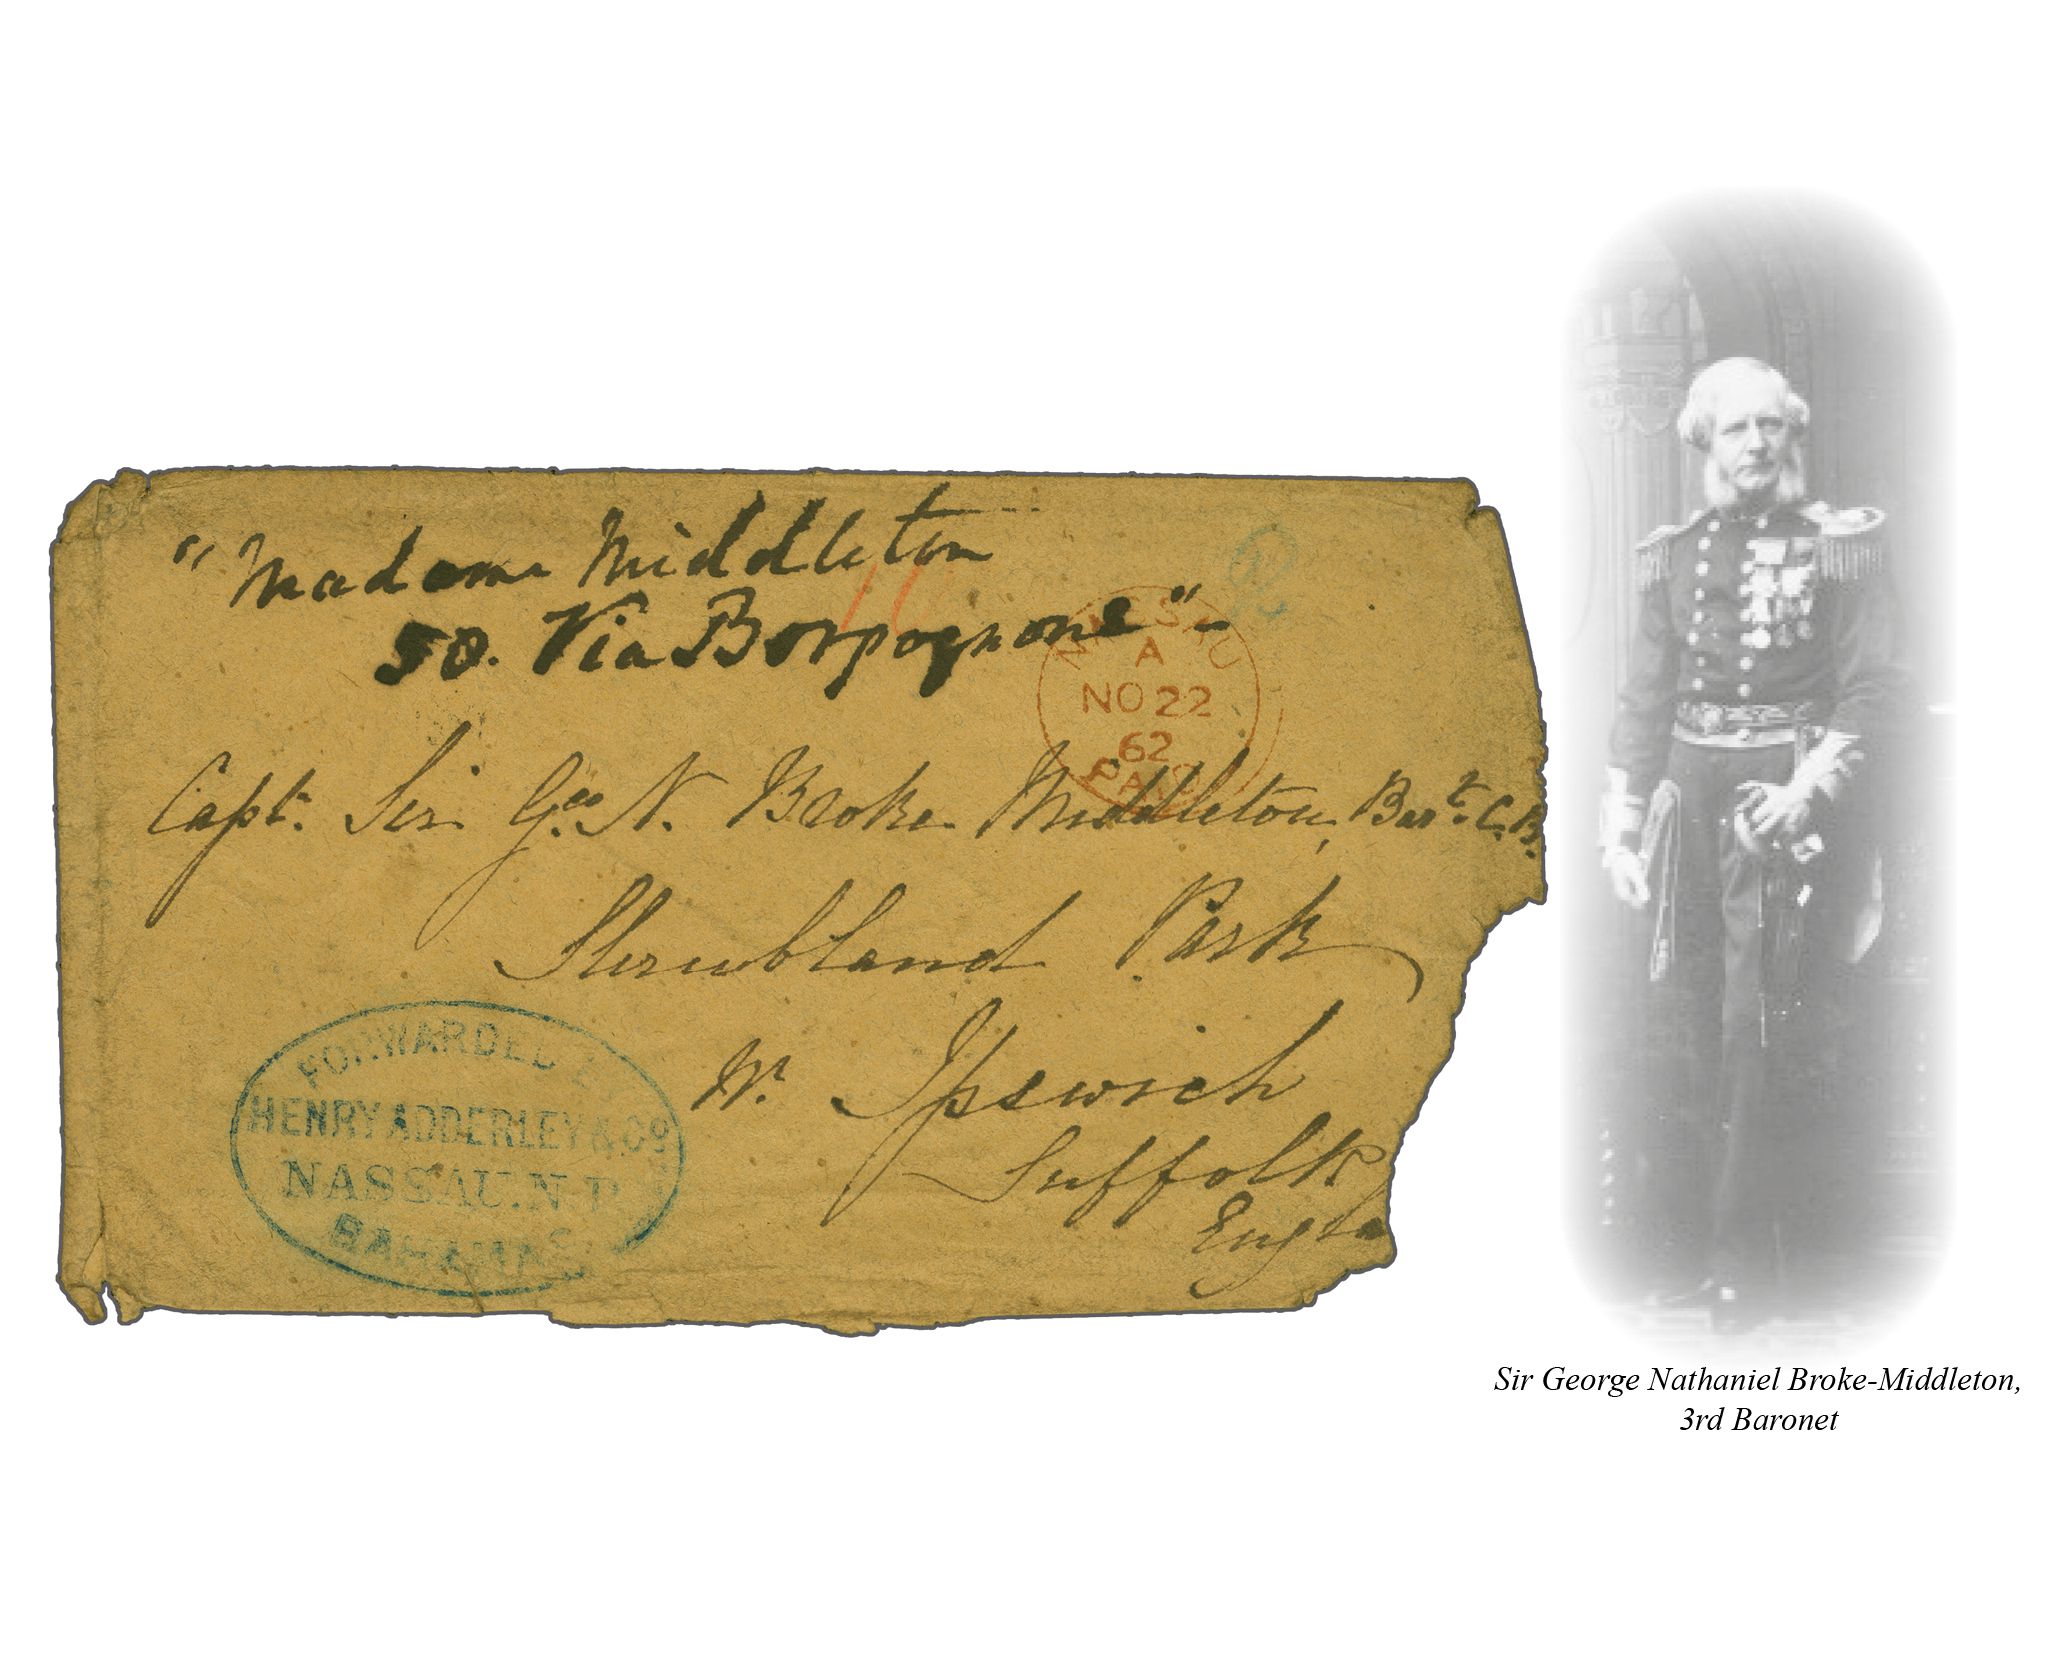 "Madame Middleton
50. Via Borgognone"
NASSAU
A
NO 22
62
PAID
Capt. Sir Geo N. Broke Middleton, Bart. C.B.
Shrubland Park
Nr. Ipswich
Suffolk
Engla
FORWARDED
HENRY ADDERLEY & CO
NASSAU. N. P.
BAHAMAS
Sir George Nathaniel Broke-Middleton,
3rd Baronet